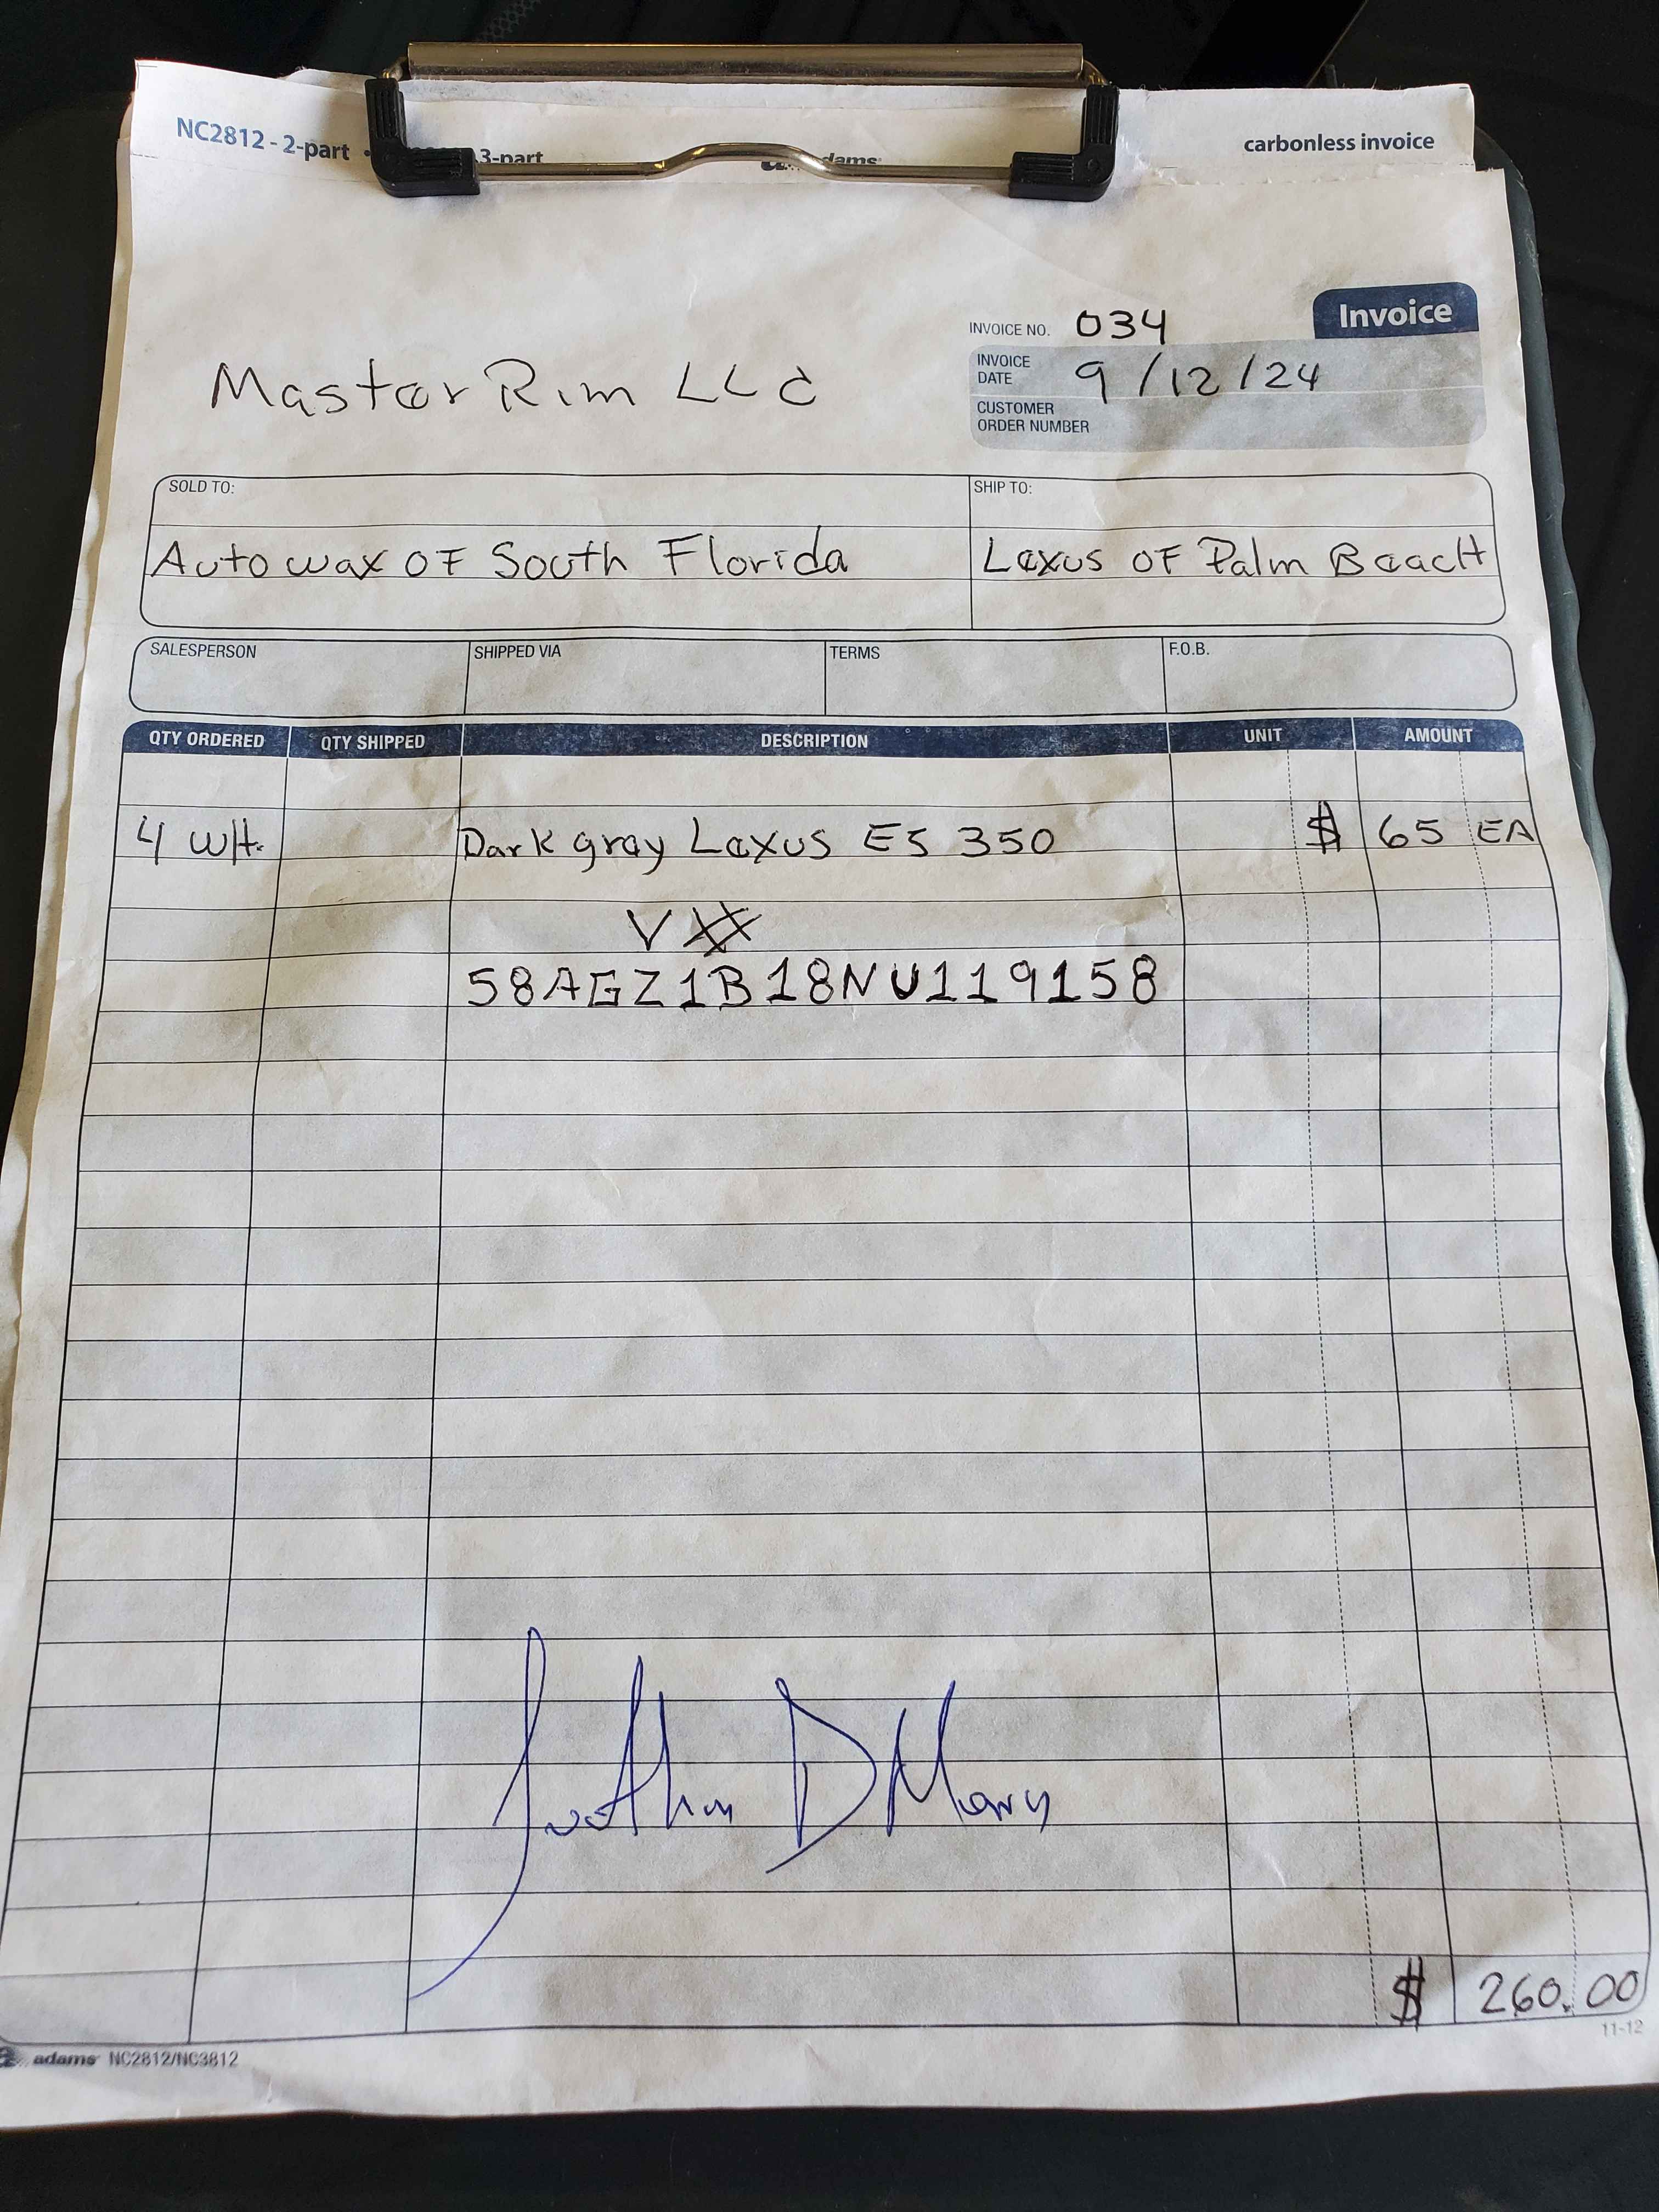 NC2812 - 2-part • 3-part
adams
carbonless invoice
Invoice
INVOICE NO. 034
INVOICE DATE 9/12/24
CUSTOMER ORDER NUMBER
Master Rim LLC
SOLD TO:
SHIP TO:
Auto wax OF South Florida
Lexus OF Palm BeacH
SALESPERSON SHIPPED VIA TERMS F.O.B.
QTY ORDERED QTY SHIPPED DESCRIPTION UNIT AMOUNT
4 WH. Dark gray Lexus ES 350 $ 65 EA
V
58AGZ1B18NU119158
$ 260.00
11-12
adams NC2812/NC3812